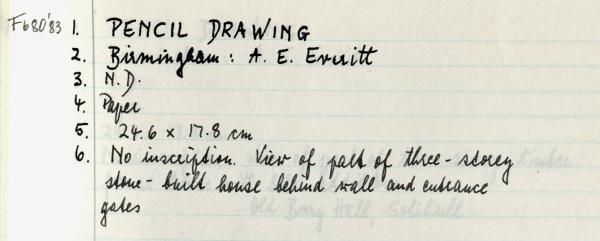 F680'83 1. PENCIL DRAWING
2. Birmingham: A. E. Everitt
3. N.D.
4. Paper
5. 24.6 x 17.8 cm
6. No inscription. View of part of three-storey
stone-built house behind wall and entrance
gates